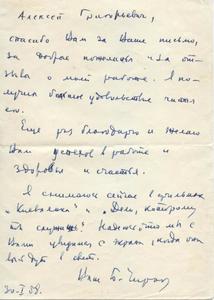 Алексей Григорьевич,
спасибо Вам за Ваше письмо,
за добрые пожелания и за от-
зывы о моей работе. Я по-
лучил большое удовольствие читая
его.
Еще раз благодарю и желаю
Вам успехов в работе и
здоровья и счастья.
Я снимаюсь сейчас в фильмах
"Киевлянка" и "Дело, которому
ты служишь". Надеюсь, что мы с
Вами увидимся с экрана, когда они
выйдут в свет.
Ваш Б. Чирков
30-I